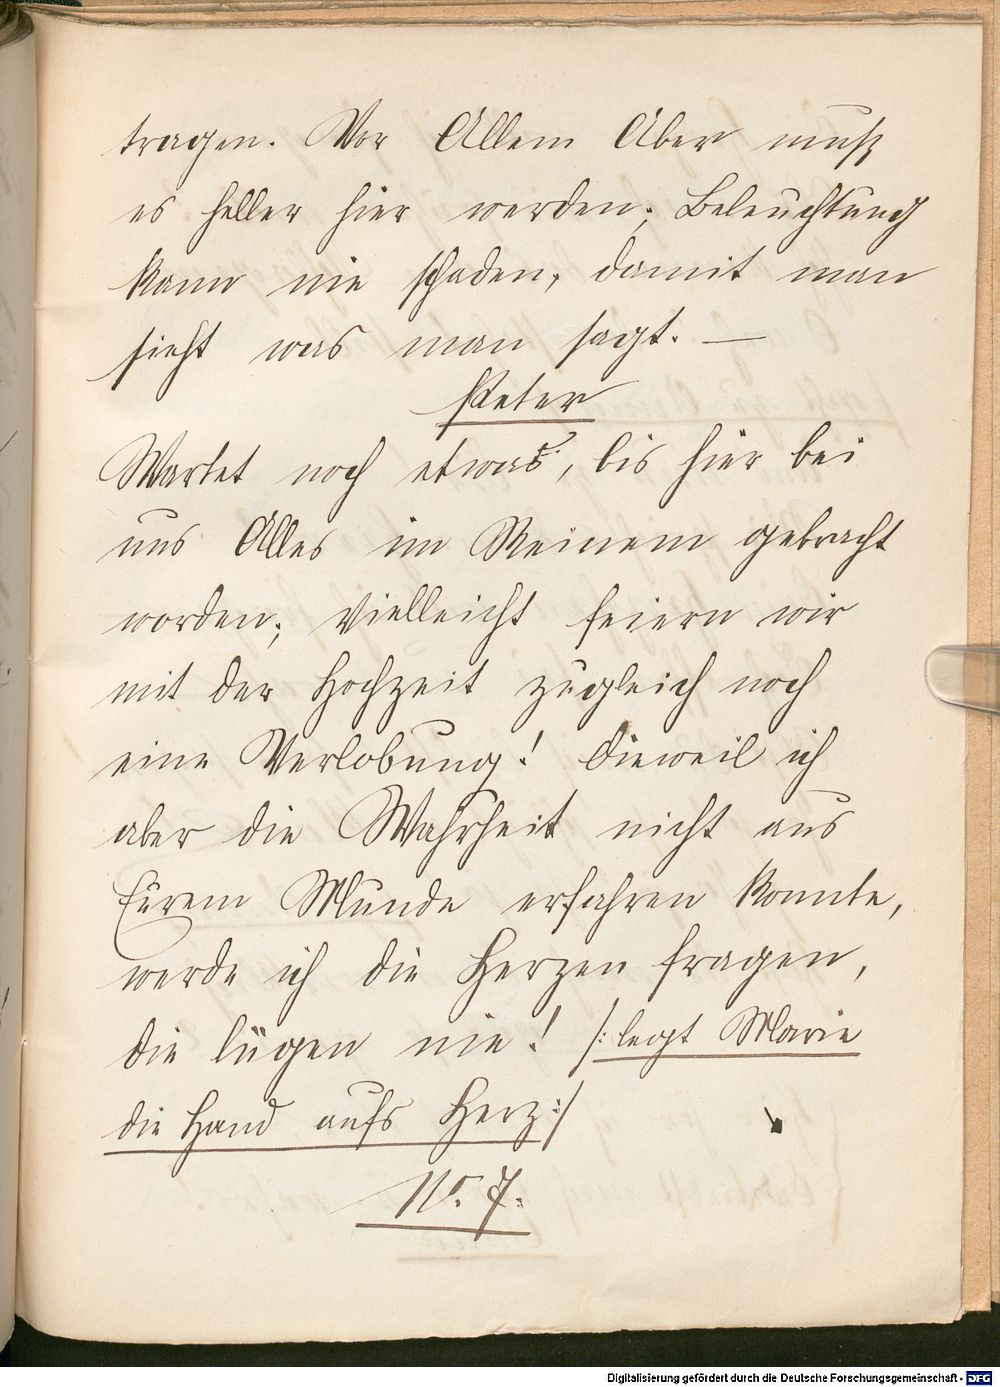 tragen. Vor Allem Aber muß
es heller hier werden; Beleuchtung
kann nie schaden, damit man
sieht was man sagt. —
Peter
Wartet noch etwas, bis hier bei
uns Alles im Reinem gebracht
worden; vielleicht feiern wir
mit der Hochzeit zugleich noch
eine Verlobung! Dieweil ich
aber die Wahrheit nicht aus
Eurem Munde erfahren konnte,
werde ich die Herzen fragen,
die lügen nie! /: legt Marie
die Hand aufs Herz :/
No. 7.
Digitalisierung gefördert durch die Deutsche Forschungsgemeinschaft - DFG